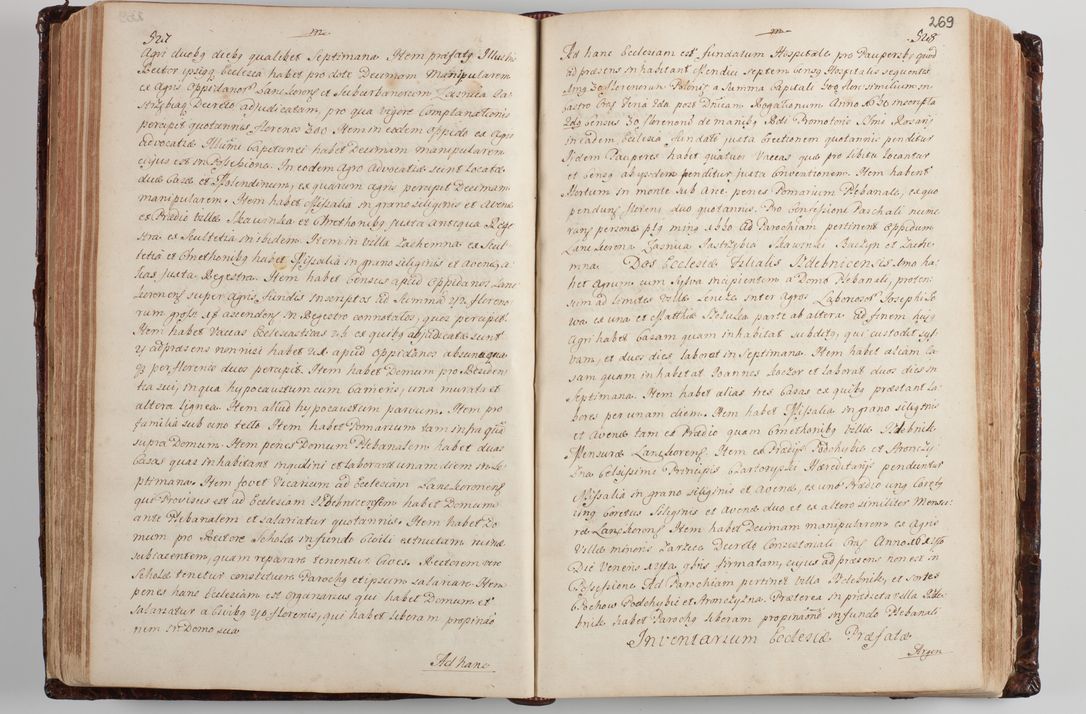 527
m
Agri duebq diebq qualibet Septimana. Item præfatq Illustris
Rector ipsiq Ecclesiæ habet pro dote Decimam Manipularem
ex Agris Oppidanorum Lanckorons et Suburbanorum
Decreto adjudicatam, pro qua vigore Complanationis
percipit quotannis florenos 300 Item in eodem oppido ex Agro
Advocatiæ Illustrmi Capitanei habet Decimam manipularem
cujus est in Possessione. In eodem Agro Advocatiæ sunt Locatæ
duæ Casæ et Molendinum, ex quarum agris percipit Decimam
manipularem. Item habet Missalia in grano siliginis et Avenæ
ex Prædio Villæ Skawinka et Cmethonibq juxta antiqua Rege
stra ex Scultetia inibidem. Item in villa Zachemna ex Scul
tetia et Cmethonibq habet Missalia in grano siliginis et Avenæ a
lias juxta Regestra. Item habet Census apud Oppidanos Lanc
koronens super Agris, fundis inscriptos ad Summam floreno
rum ascendens in Regestro connotatos, quos percipit.
Item habet Vaccas Ecclesiasticas ex quibq abjudicatæ sunt
ad præsens non nisi habet apud Oppidanos
per florenos duos percipit. Item habet Domum pro Residen
tia sui, in qua hypocaustum cum Cameris, una murata et
altera lignea. Item aliud hypocaustum parvum. Item pro
familia sub uno tecto Item habet Pomarium tam infra quam
supra Domum. Item penes Domum Plebanalem habet duas
Casas quas inhabitant inquilini et laborant unam diem in Se
ptimana. Item fovet Vicarium ad Ecclesiam Lanckoronens
qui Provisus est ad Ecclesiam Zebncensem habet Domum
ante Plebanalem et salariatur quotannis. Item habet Do
mum pro Rectore Scholæ in fundo Civili extructam ruinæ
subjacentem, quam reparare tenentur Cives. Rectorem vero
Scholæ tenetur constituere Parochq et ipsum salariare. Item
penes hanc Ecclesiam est organarius qui habet Domum et
Salariatur a Civibq 40 florenis, qui habet liberam propinatio
nem in Domo sua
Ad hanc
269
m
528
Ad hanc Ecclesiam est fundatum Hospitale pro Pauperibq quod
ad præsens inhabitant Mendici septem Censq Hospitalis sequentes
Imq 30 florenorum Polons a Summa Capitali similium in
Castro Crac Feria 2da post Dnicam Rogationum Anno 1630 inscripta
2dq Census 30 florenorum de manibq Rndi Promotoris Ssmi Rosarii
in eadem Ecclesia fundati juxta Erectionem quotannis penditur
Iidem Pauperes habent quatuor Vaccas quæ pro libitu locantur
et Censq ab iisdem penditur juxta Conventionem. Item habent
Hortum in monte sub Arce penes Pomarium Plebanale, ex quo
penduns floreni duo quotannis. Pro Confessione Paschali nume
rans personæ plq minq 1330 ad Parochiam pertinent Oppidum
Lanckorona Jasnica Jastrzębia Skawinki Buczyn et Zache
mna. Dos Ecclesiæ Filialis Zdebnicensis Imo ha
bet Agrum cum Sylva incipientem a Domo Plebanali, proten
sum ad limites Villæ Lencze inter Agros Laboriosor Josephi
ex una et Matthiæ parte ab altera. Ad finem hujq
Agri habet Casam quam inhabitat subditq, qui custodit syl
vam, et duos dies laborat in Septimana. Item habet aliam Ca
sam quam inhabitat Joannes Raczor et laborat duos dies in
Septimana. Item habet alias tres Casas ex quibq præstant la
bores per unam diem. Item habet Missalia in grano siliginis
et Avenæ tam ex Prædio quam Cmethonibq villæ Zdebnik
Mensuræ Lanckorens. Item ex Prædijs Podchybie et Stronczy
zna Celsissimi Principis Czartoryski Hæreditarijs penduntur
Missalia in grano siliginis et Avenæ, ex uno Prædio unq Coretq
sinq Coretus Siliginis et Avenæ duo et ex altero similiter Mensu
ræ Lanckorons Item habet Decimam manipularem ex Agris
Villæ minoris Zarzecz Decreto Consistoriali Crac Anno
Die Veneris firmatam, cujus ad præsens non est in
Possessione. Ad Parochiam pertinet villa Zdebnik, et sortes
Brochow Podchybie et Stronczyzna. Præterea in prædicta villa Zde
bnik habet Parochq liberam propinationem in fundo Plebanali
Inventarium Ecclesiæ Præfatæ
Argen